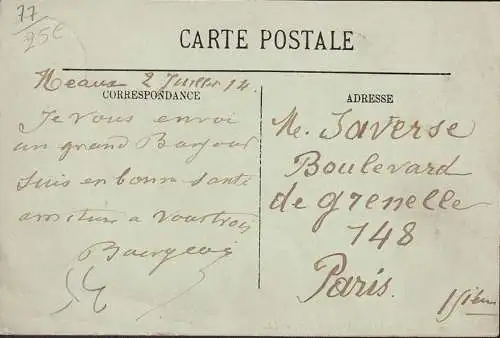 77
25€
CARTE POSTALE
Meaux 2 Juillet 14.
CORRESPONDANCE
Je vous envoi
un grand Bonjour
suis en bonne santé
a vous trois
Bourgeois
ADRESSE
M. Saverse
Boulevard
de grenelle
148
Paris.
15ième